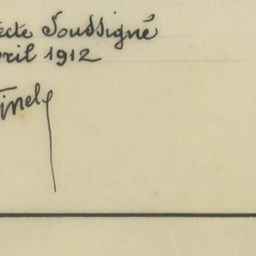 ecte Soussigné
vril 1912
inel